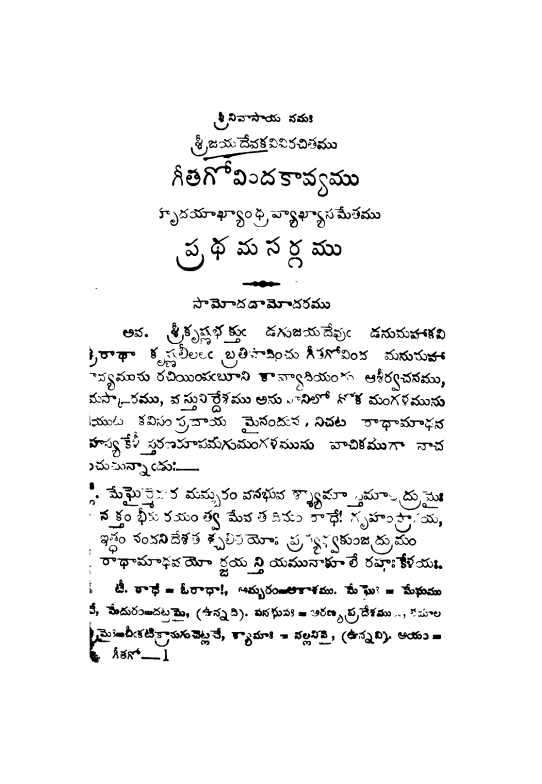 శ్రీనివాసాయ నమః
శ్రీజయదేవకవివిరచితము
గీతగోవిందకావ్యము
హృదయాఖ్యాంధ్రవ్యాఖ్యాసమేతము
ప్రథమసర్గము
సామోదదామోదరము
అవ. శ్రీకృష్ణభక్తుఁ డగుజయదేవుఁ డనుమహాకవి
శ్రీరాధా కృష్ణలీలలఁ బ్రతిపాదించు గీతగోవింద మనుమహా
కావ్యమును రచియింపఁబూని కావ్యాదియందు ఆశీర్వచనము,
నమస్కారము, వస్తునిర్దేశము అను వానిలో నొక మంగళమును
కవిసంప్రదాయ మైనందున, నిచట రాధామాధవ
రహస్యకేళీ స్మరణరూపమగుమంగళమును వాచికముగా నాచ
రించుచున్నాఁడు:—
మేఘైర్మేదుర మమ్బరం వనభువ శ్శ్యామా స్తమాలద్రుమైః
నక్తం భీరు రయం త్వ మేవ తదిమం రాధే! గృహం ప్రాపయ,
ఇత్థం నందనిదేశత శ్చలితయోః ప్రత్యధ్వకుంజద్రుమం
రాధామాధవయో ర్జయ న్తి యమునాకూలే రహఃకేళయః.
టీ. రాధే = ఓరాధా!, అమ్బరం=ఆకాశము. మేఘైః = మేఘము
చే, మేదురం=దట్టమై, (ఉన్నది). వనభువః = అరణ్యప్రదేశములు, తమాల
ద్రుమైః=చీఁకటిక్రానుగుచెట్లచే, శ్యామాః = నల్లనివై, (ఉన్నవి). అయం =
గీతగో—1